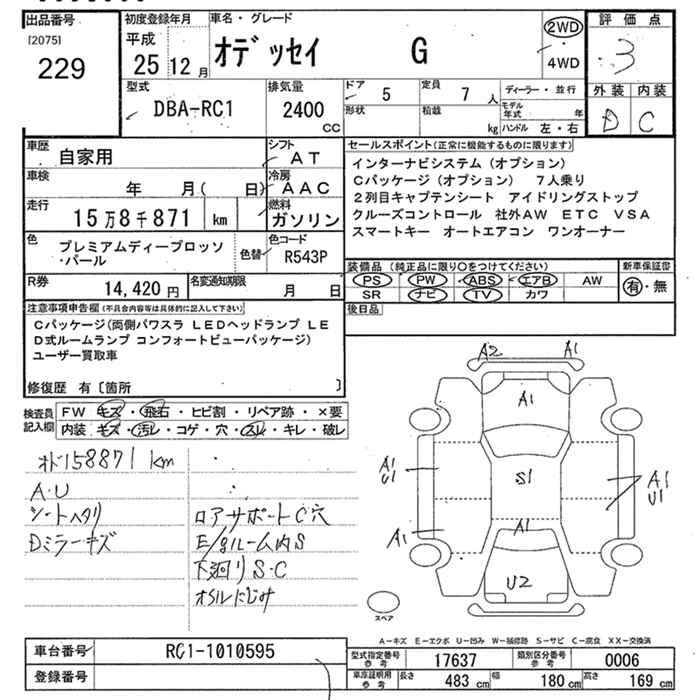 出品番号
[2075]
229
初度登録年月
平成
25 12月
車名・グレード
オデッセイ G
2WD
4WD
評価点
3
外装 内装
D C
型式
DBA-RC1
排気量
2400
CC
ドア
5
形状
定員
7人
積載
kg
ディーラー・並行
モデル年式 年
ハンドル 左・右
車歴
自家用
シフト
AT
車検
年 月( 日)
冷房
AAC
走行
15万8千871 km
燃料
ガソリン
色
プレミアムディープロッソ
・パール
色替
色コード
R543P
R券
14,420円
名変通知期限
月 日
セールスポイント(正常に機能するものに限ります)
インターナビシステム (オプション)
Cパッケージ (オプション) 7人乗り
2列目キャプテンシート アイドリングストップ
クルーズコントロール 社外AW ETC VSA
スマートキー オートエアコン ワンオーナー
装備品 (純正品に限り○をつけてください)
新車保証書
PS PW ABS エアB AW
有・無
SR ナビ TV カワ
後日品
注意事項申告欄(不具合内容等は具体的に記入して下さい)
Cパッケージ(両側パワスラ LEDヘッドランプ LE
D式ルームランプ コンフォートビューパッケージ)
ユーザー買取車
修復歴 有〔箇所 〕
検査員
記入欄
FW キズ・飛石・ヒビ割・リペア跡・×要
内装 キズ・汚レ・コゲ・穴・スレ・キレ・破レ
オド158871 km
A・U
シートヘタリ
Dミラーキズ
ロアサポートC穴
E/gルーム内S
下廻りS・C
オイルにじみ
A2 A1
A1
A1
U1
S1
A1
U1
A1
A1
U2
スペア
A-キズ E-エクボ U-凹み W-補修跡 S-サビ C-腐食 XX-交換済
車台番号
RC1-1010595
登録番号
型式指定番号
参考
17637
類別区分番号
参考
0006
車庫証明用
参考
長さ
483 cm
幅
180 cm
高さ
169 cm